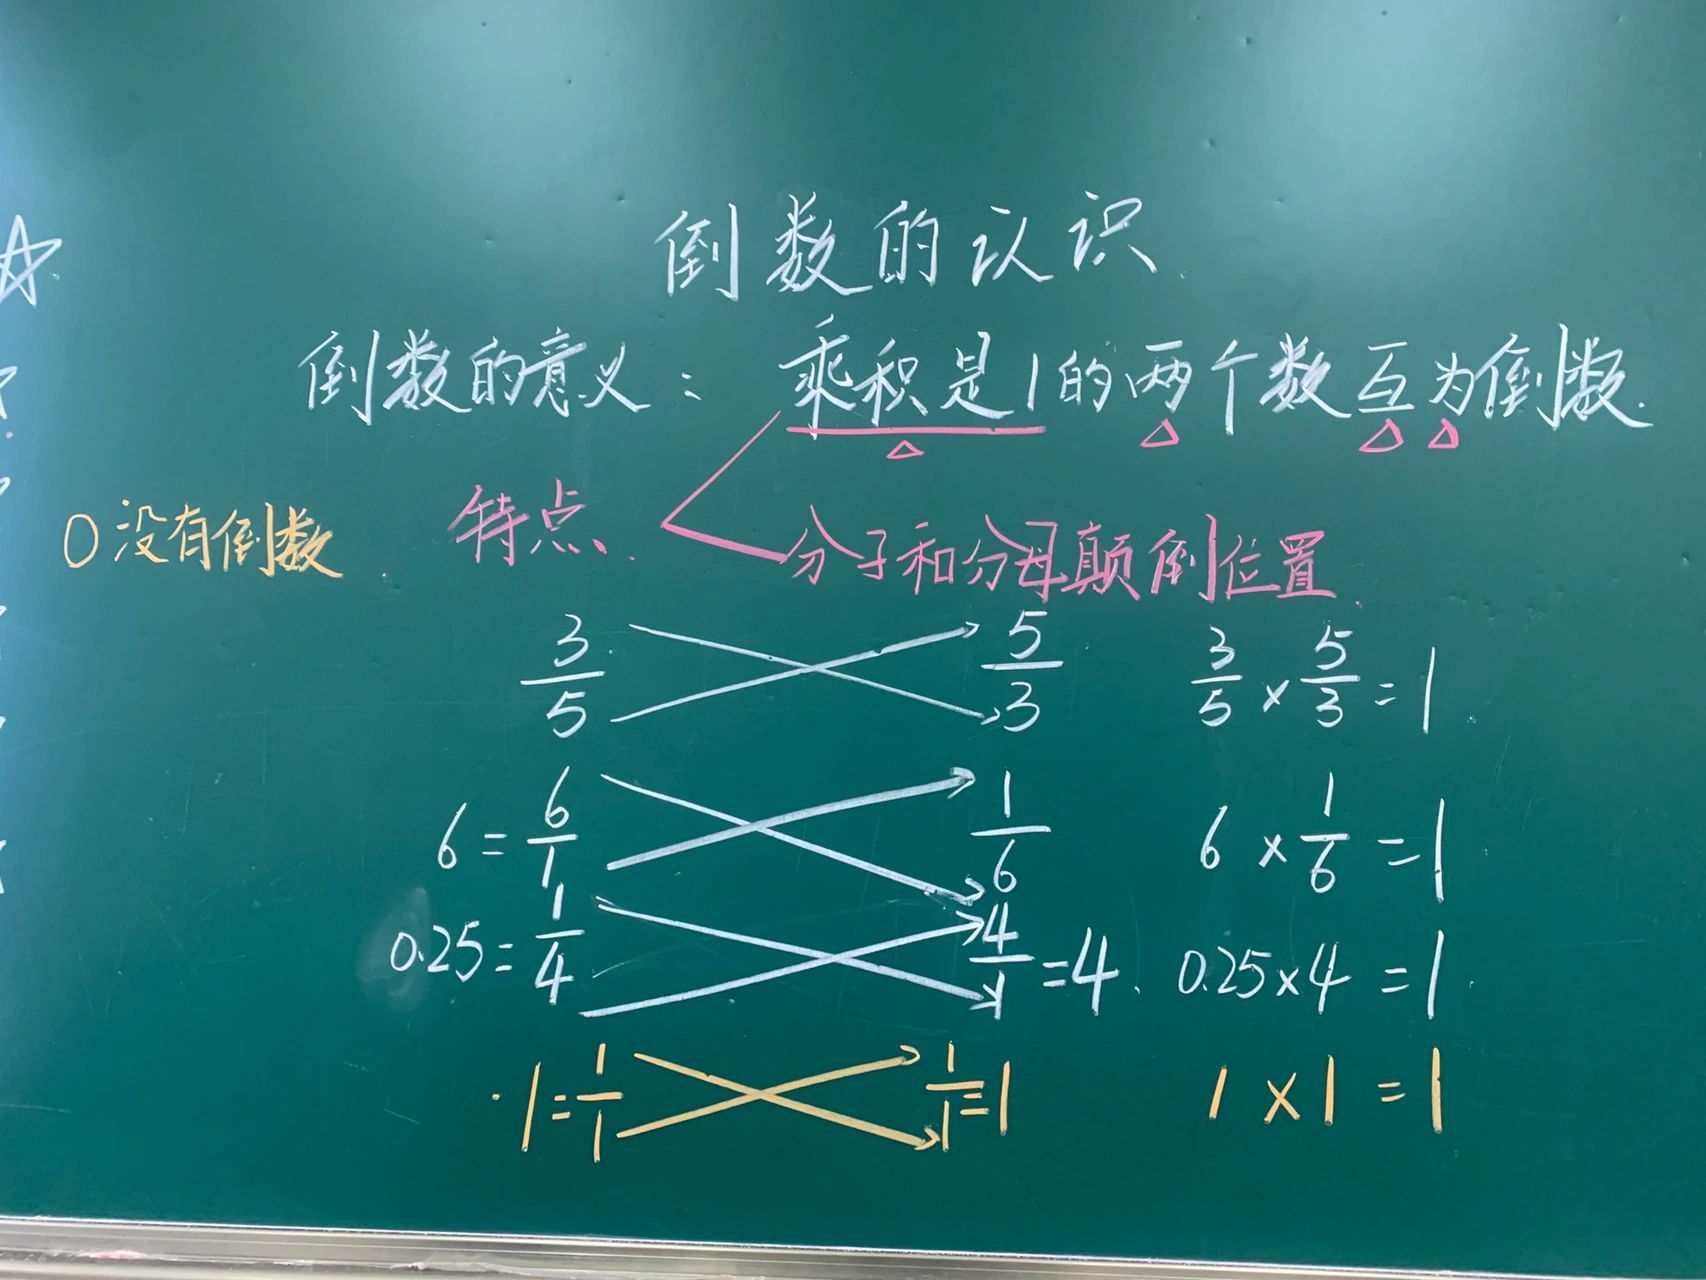 倒数的认识
倒数的意义：乘积是1的两个数互为倒数.
0没有倒数 特点. 分子和分母颠倒位置
3/5 5/3 3/5×5/3=1
6=6/1 1/6 6×1/6=1
0.25=1/4 4/1=4. 0.25×4=1
1=1/1 1/1=1 1×1=1